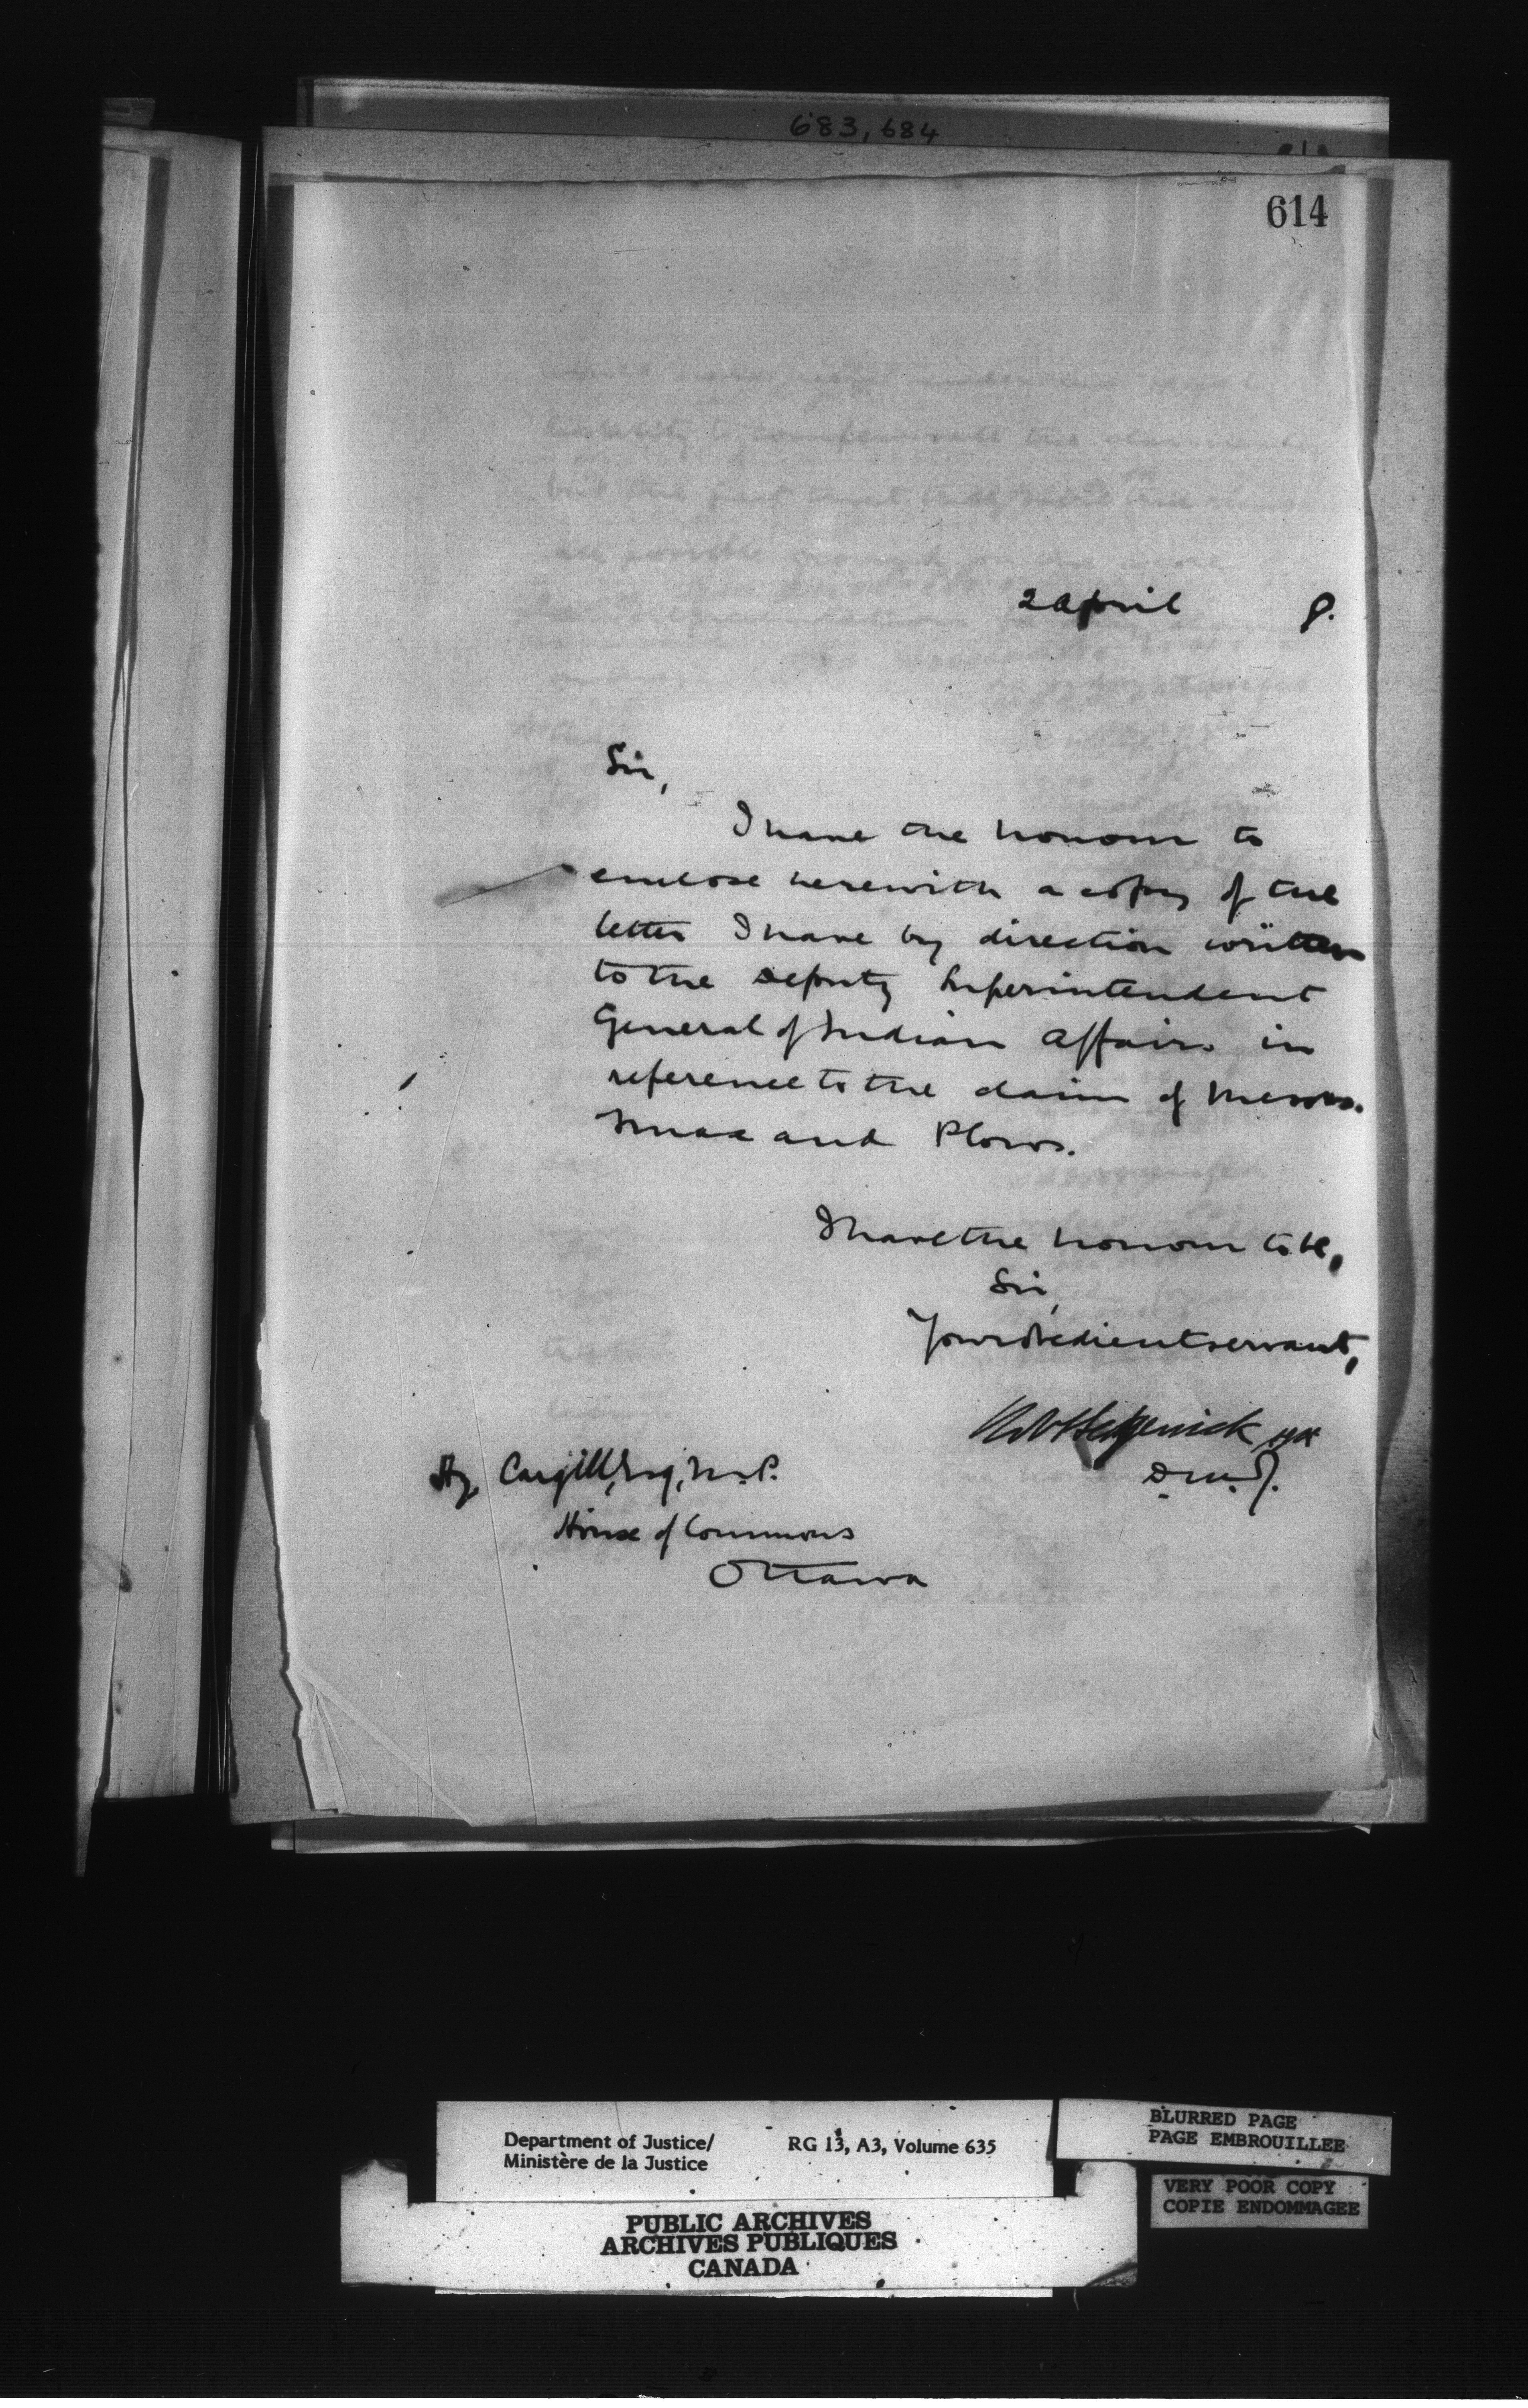 683, 684
614
2 April 8.
Sir,
I have the honour to
enclose herewith a copy of the
letter I have by direction written
to the Deputy Superintendent
General of Indian Affairs in
reference to the claim of Messrs.
and Plows.
I have the honour to be,
Sir,
Your obedient servant,
Sedgewick
D.M.J.
Hy. Cargill, Esq, M.P.
House of Commons
Ottawa
Department of Justice/ RG 13, A3, Volume 635
Ministère de la Justice
BLURRED PAGE
PAGE EMBROUILLEE
VERY POOR COPY
COPIE ENDOMMAGEE
PUBLIC ARCHIVES
ARCHIVES PUBLIQUES
CANADA